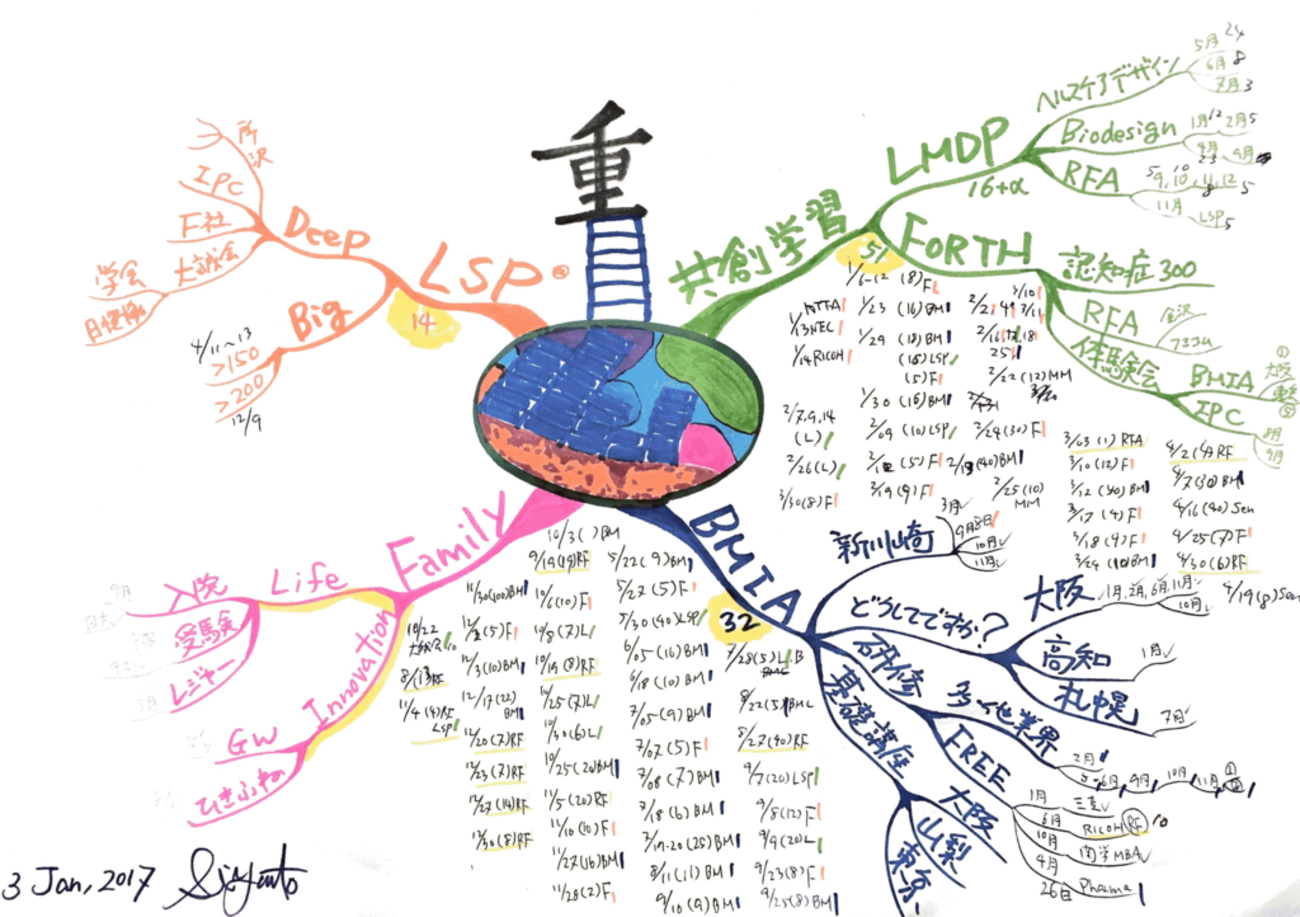 重
LSP
14
Deep
所沢
IPC
F社
大誠会
学会
Big
4/11~13
>150
>200
12/9
共創学習
51
LMDP
16+α
ヘルスケアデザイン
5月 24
6月 8
7月 3
Biodesign
1月12 2月5
RFA
11月
LSP 5
FORTH
認知症300
RFA
金沢
体験会
BMIA
①大阪
IPC
8月
9月
1/6-12 (8)F
1/13 NEC
1/14 RICOH
1/23 (16)BM
1/29 (18)BM
(16)LSP
(5)F
1/30 (16)BM
2/7,9,14
(L)
2/09 (10)LSP
2/26(L)
3/30(8)F
2/19(9)F
2/22(12)MM
2/24(30)F
2/25(10)
MM
3/03(1)RFA
3/10(12)F
3/12(40)BM
3/17(4)F
3/18(4)F
3/24(10)BM
4/7(30)BM
4/16(40)Sen
4/25(7)F
4/30(6)RF
4/19(8)Sen
Family
Life
入院
受験
レジャー
Innovation
GW
ひきふね
BMIA
32
新川崎
3月
9月8日
10月
11月
どうしてですか?
大阪
1月,2月,6月,11月
10月
高知
1月
札幌
7月
研修
多他業界
2月
5・6月 9月 10月 11月
FREE
1月 三重
6月 RICOH RF 10
10月 関学MBA
4月
26日 Pharma
基礎講座
大阪
山梨
東京
10/3( )BM
9/19(19)RF
11/30(100)BM
12/2(5)F
12/3(10)BM
12/17(22)
BM
12/20(7)RF
12/23(7)RF
12/27(14)RF
12/30(8)RF
10/22
8/13RF
11/4(4)RF
LSP
10/6(10)F
10/8(7)L
10/19(8)RF
10/25(7)L
10/30(6)L
10/25(20)BM
11/5(20)RF
11/10(10)F
11/27(16)BM
11/28(2)F
5/22(9)BM
5/27(5)F
5/30(40)LSP
6/05(16)BM
6/18(10)BM
7/05(9)BM
7/07(5)F
7/08(7)BM
7/18(6)BM
7/19-20(25)BM
8/11(11)BM
9/10(9)BM
7/28(5)L.B
8/22(5)BMC
8/27(40)RF
9/7(20)LSP
9/8(12)F
9/9(20)L
9/23(8)F
9/25(8)BM
3 Jan, 2017